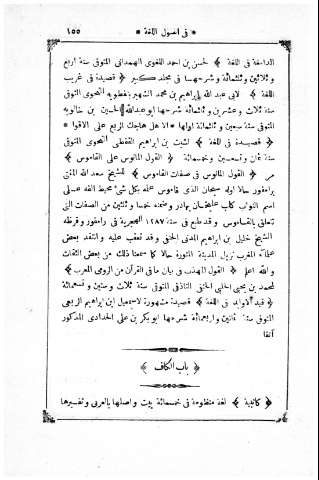 * فى اصول اللغة * ١٥٥
الدامغة فى اللغة ﴾ لحسن بن احمد اللغوى الهمدانى المتوفى سنة اربع
وثلاثين وثلثمائة وشرحها فى مجلد كبير ﴿ قصيدة فى غريب
اللغة ﴾ لابى عبد الله ابراهيم بن محمد الشهير بنفطويه النحوى المتوفى
سنة ثلاث وعشرين وثلثمائة شرحها ابو عبدالله الحسين بن خالويه
المتوفى سنة سبعين وثلثمائة اولها * الا هل هاجك اربع على الاقوا *
﴿ قصيدة فى اللغة ﴾ لشيث بن ابراهيم القفطى النحوى المتوفى
سنة ثمان وتسعين وخمسمائة ﴿ القول المأنوس على القاموس ﴾
مر ﴿ القول المأنوس فى صفات القاموس ﴾ للشيخ سعد الله المفتى
برامفور حالا اوله سبحان الذى قاموس علمه بكل شئ محيط الفه على
اسم النواب كلب عليخان بهادر وضمنه خمسا وثلاثين من الصفات التى
تتعلق بالقاموس وقد طبع فى سنة ١٢٨٧ الهجرية فى رامفور وقرظه
الشيخ خليل بن ابراهيم المدنى الحنفى وقد تعقب عليه وانتقد بعض
علماء المغرب نزيل المدينة المنورة حالا كما سمعنا ذلك من بعض الثقات
والله اعلم ﴿ القول المهذب فى بيان ما فى القرآن من الرومى المعرب ﴾
لمحمد بن يحيى الحلبى الحنفى التاذفى المتوفى سنة ثلاث وستين وتسعمائة
﴿ قيد الاوابد فى اللغة ﴾ قصيدة مشهورة لاسمعيل ابن ابراهيم الربعى
المتوفى سنة ثمانين واربعمائة شرحها ابوبكر بن على الحدادى المذكور
آنفا
﴿ باب الكاف ﴾
﴿ كاتبية ﴾ لغة منظومة فى خمسمائة بيت واصلها بالعربى وتفسيرها